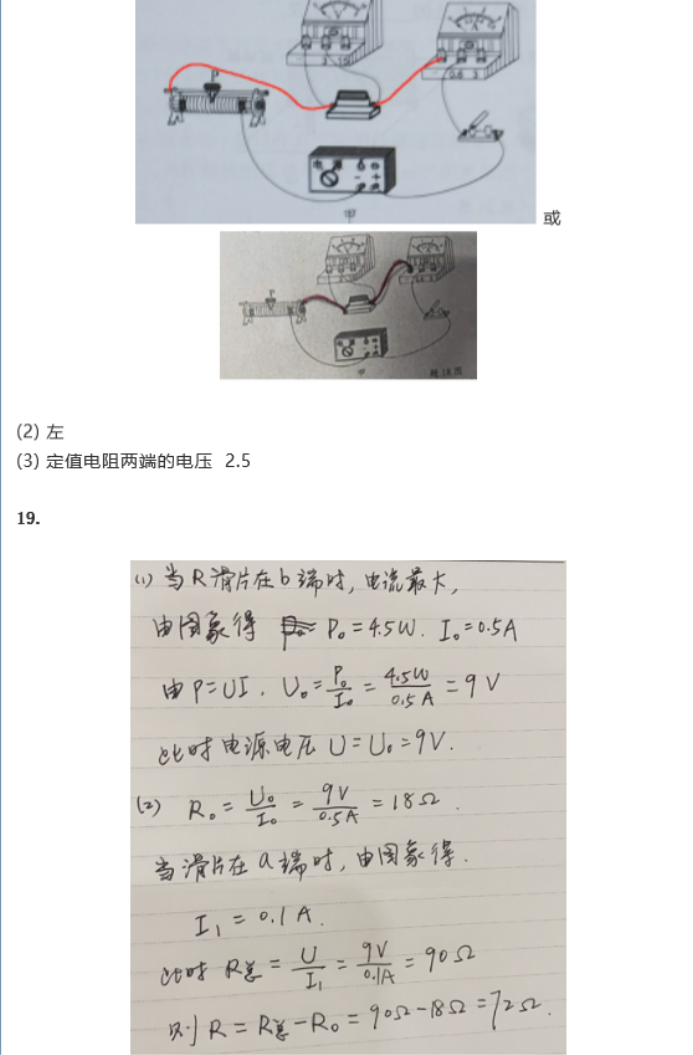 0.6 3
甲
或
甲
题18图
(2) 左
(3) 定值电阻两端的电压 2.5
19.
(1) 当R滑片在b端时,电流最大,
由图象得 P₀=4.5W. I₀=0.5A
由P=UI. U₀=P₀/I₀=4.5W/0.5A=9V
此时电源电压U=U₀=9V.
(2) R₀=U₀/I₀=9V/0.5A=18Ω.
当滑片在a端时,由图象得.
I₁=0.1A.
此时 R总=U/I₁=9V/0.1A=90Ω
则R=R总-R₀=90Ω-18Ω=72Ω.